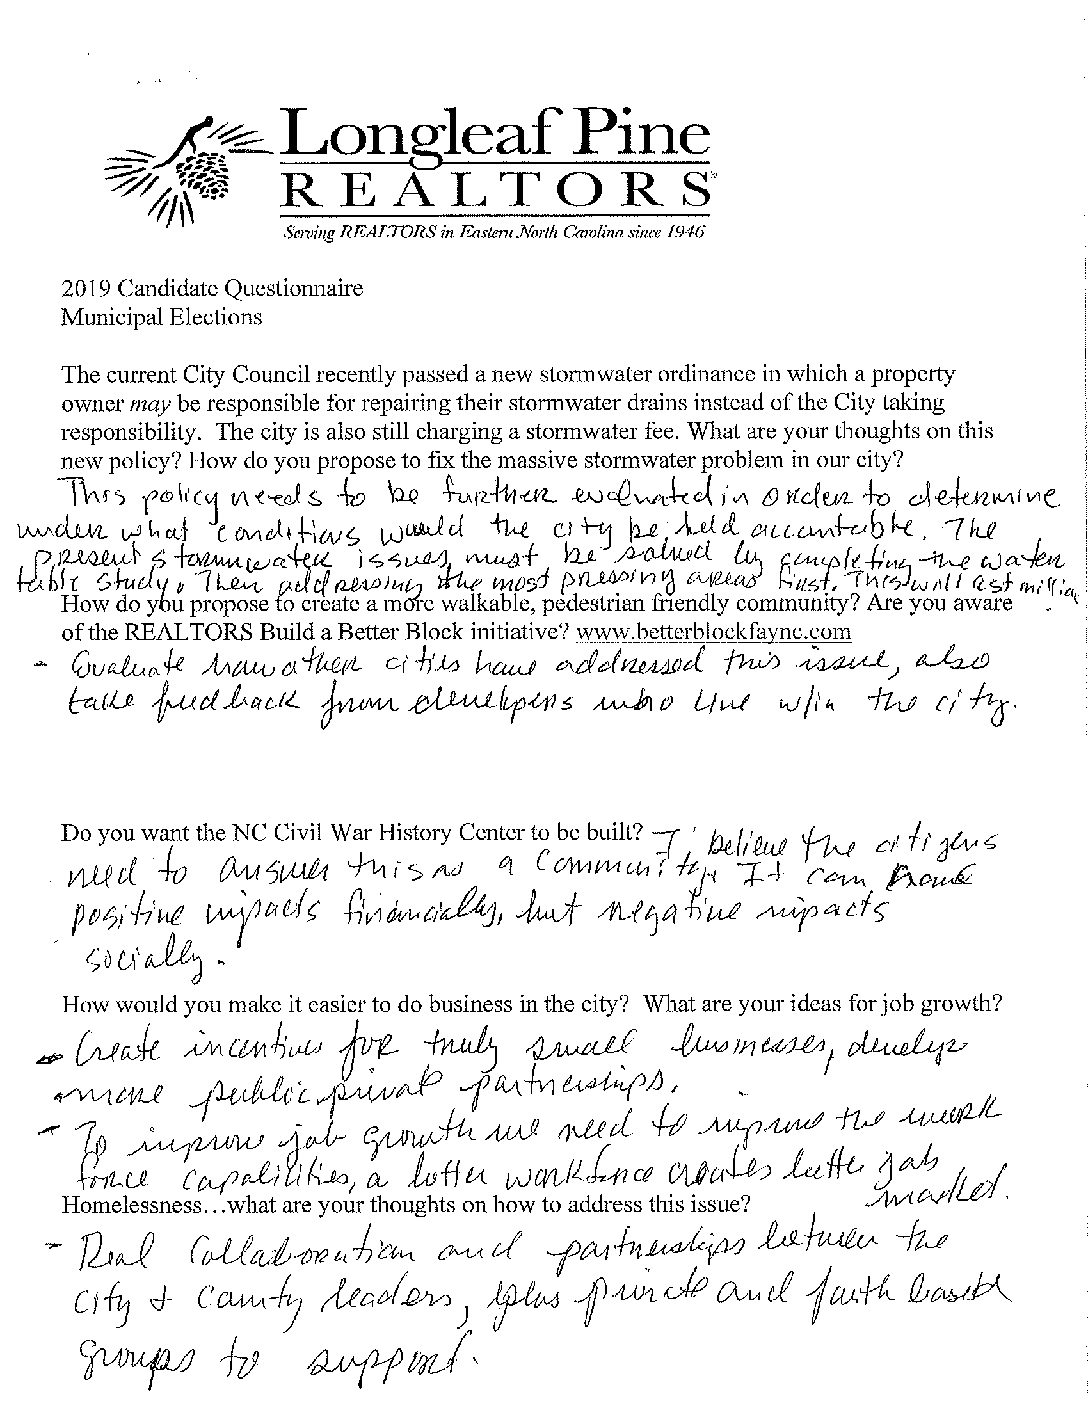 Longleaf Pine
REALTORS
Serving REALTORS in Eastern North Carolina since 1946
2019 Candidate Questionnaire
Municipal Elections
The current City Council recently passed a new stormwater ordinance in which a property
owner may be responsible for repairing their stormwater drains instead of the City taking
responsibility. The city is also still charging a stormwater fee. What are your thoughts on this
new policy? How do you propose to fix the massive stormwater problem in our city?
This policy needs to be further evaluated in order to determine
under what conditions would the city be held accountable. The
present stormwater issues must be solved by completing the water
table study, then addressing the most pressing areas first. This will cost
How do you propose to create a more walkable, pedestrian friendly community? Are you aware
of the REALTORS Build a Better Block initiative? www.betterblockfaync.com
- Evaluate how other cities have addressed this issue, also
take feedback from developers who live w/in the city.
Do you want the NC Civil War History Center to be built? I believe the citizens
need to answer this as a community. It can have
positive impacts financially, but negative impacts
socially.
How would you make it easier to do business in the city? What are your ideas for job growth?
- Create incentives for truly small businesses, develop
more public private partnerships.
- To improve job growth we need to improve the work
force capabilities, a better workforce creates better job
market.
Homelessness…what are your thoughts on how to address this issue?
- Real Collaboration and partnerships between the
City & County leaders, plus private and faith based
groups to support.